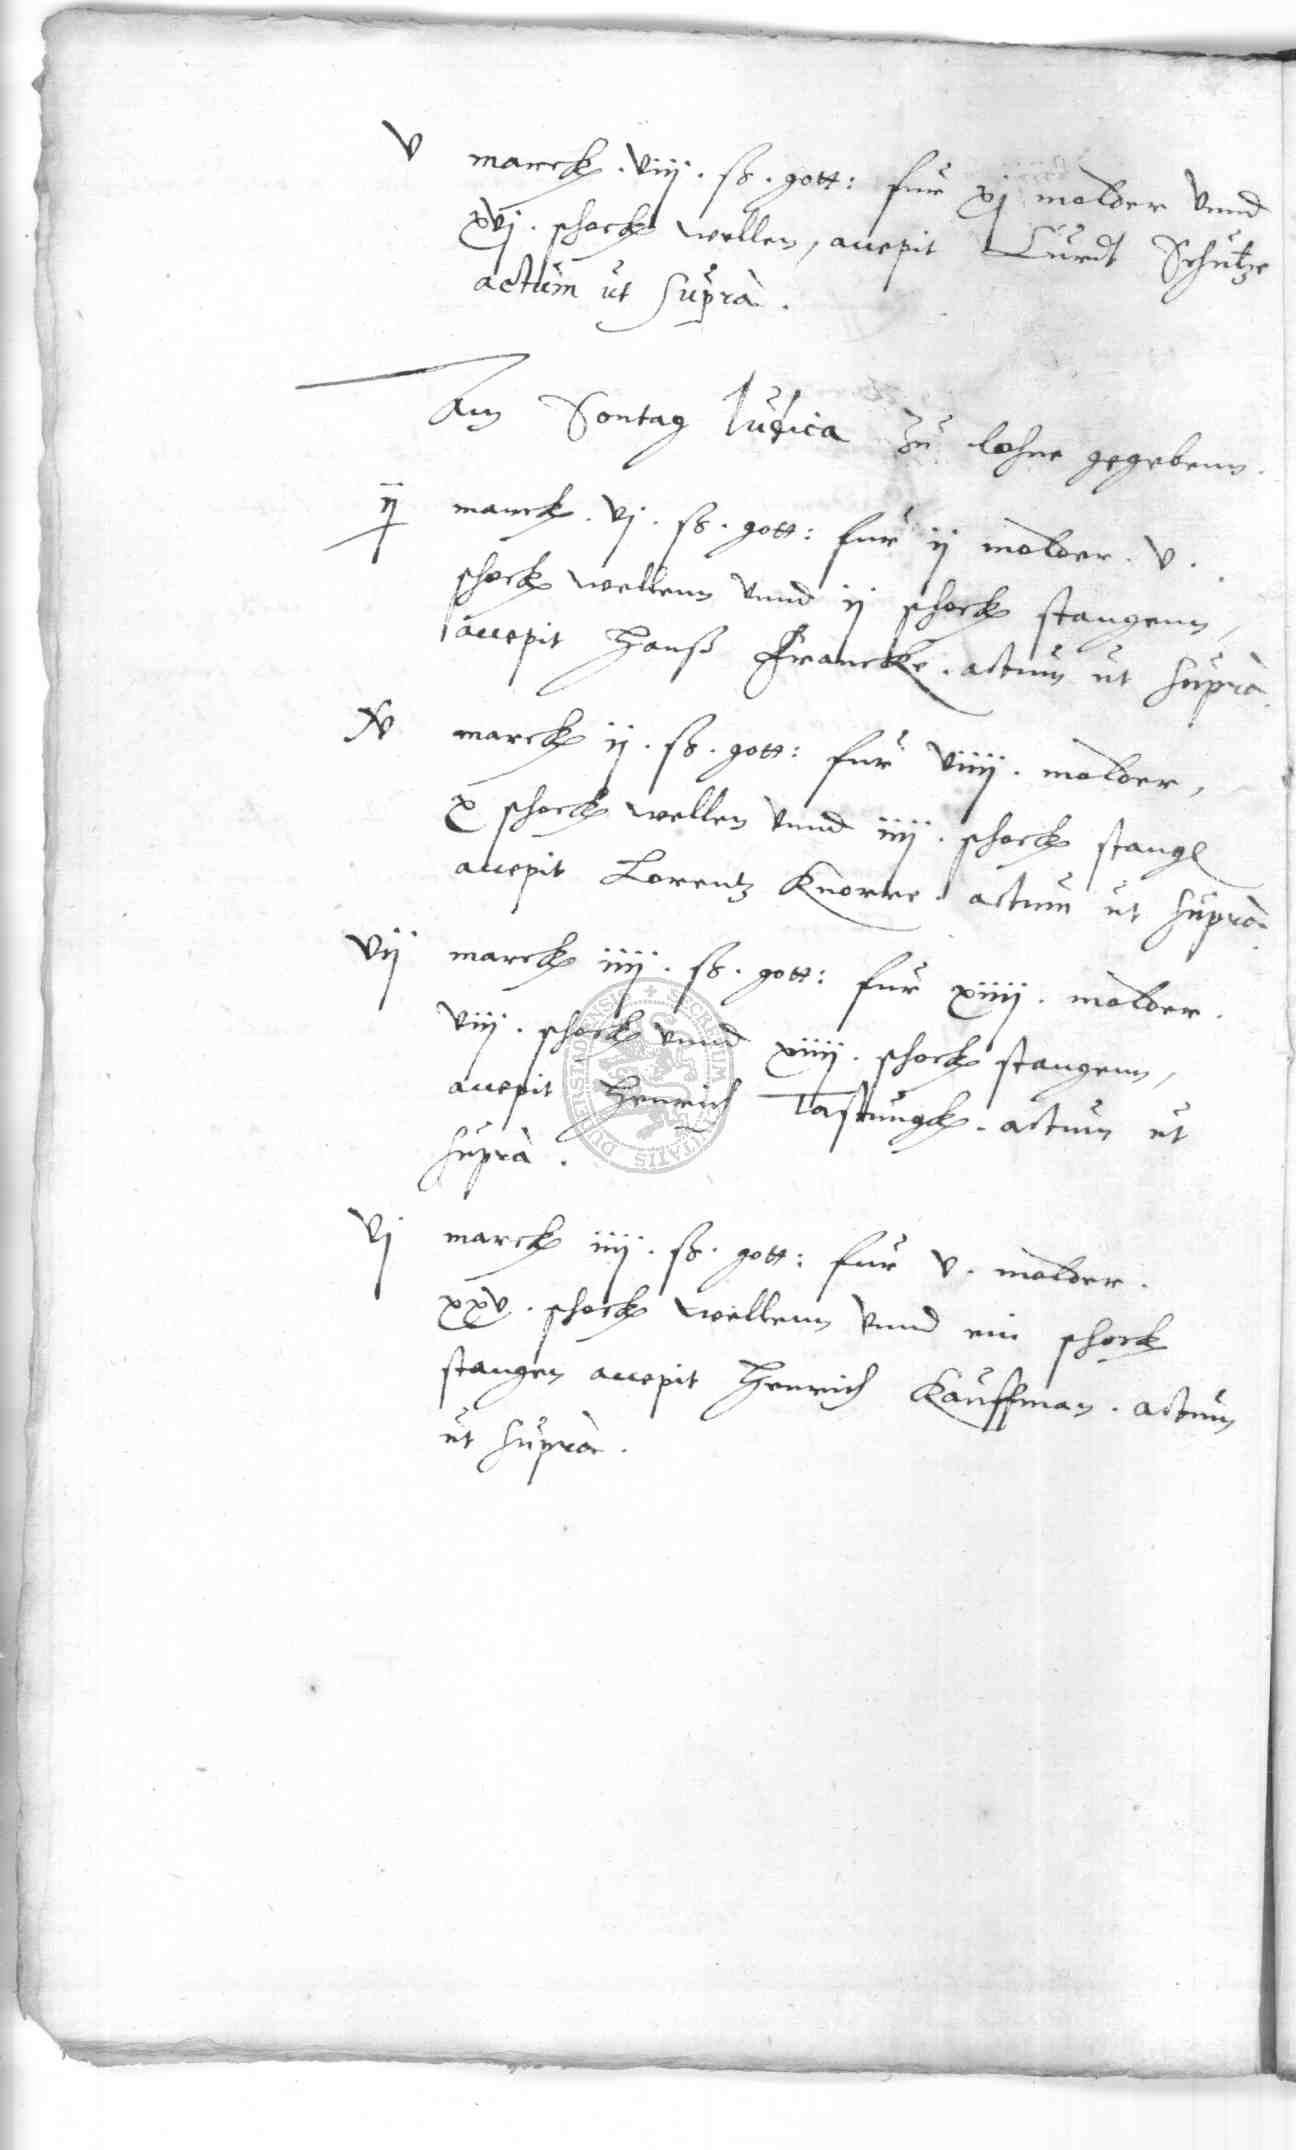 v marck . viij . ß . gott: fur xj molder vnnd
xvj . schock wellen, accepit Curdt Schutze
actum ut supra .
Am Sontag Iudica zu lohne gegebenn .
ij marck . vj . ß . gott: fur ij molder . v .
schock wellenn vnnd ij schock stangenn,
accepit Hanß Francke . actum ut supra .
marck ij . ß . gott: fur viiij . molder,
x schock wellen vnnd iiij . schock stangen
accepit Lorentz Knorre . actum ut supra .
vij marck iiij . ß . gott: fur xiiij . molder .
viij . schock vnnd xiiij . schock stangenn,
accepit Henrich Tastungk . actum ut
supra .
vj marck iiij . ß . gott: fur v . molder .
xxv . schock wellenn vnnd ein schock
stangen accepit Henrich Kauffman . actum
ut supra .
SECRETUM CIVITATIS DUDERSTADENSIS